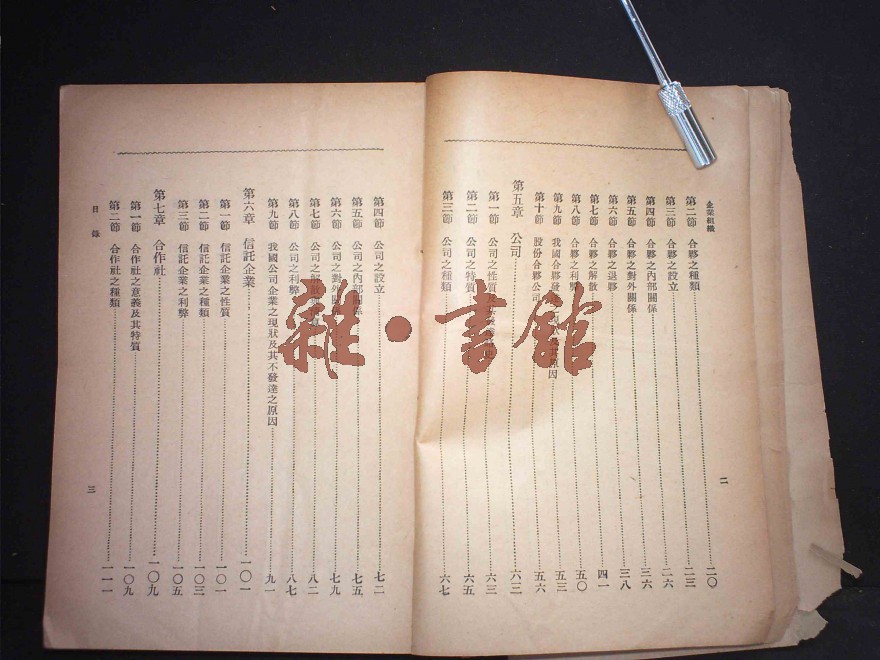 企業組織
第二節 合夥之種類 二〇
第三節 合夥之設立 二三
第四節 合夥之內部關係 二六
第五節 合夥之對外關係 三六
第六節 合夥之退夥 三八
第七節 合夥之解散 四一
第八節 合夥之利弊 五〇
第九節 我國合夥發達之 及其原因 五三
第十節 股份合夥公司 五六
第五章 公司 六三
第一節 公司之性質 六三
第二節 公司之特質 六五
第三節 公司之種類 六七
二
第四節 公司之設立 七二
第五節 公司之內部關係 七五
第六節 公司之對外關 七九
第七節 公司之解散 八二
第八節 公司之利弊 八七
第九節 我國公司企業之現狀及其不發達之原因 九一
第六章 信託企業 一〇一
第一節 信託企業之性質 一〇一
第二節 信託企業之種類 一〇三
第三節 信託企業之利弊 一〇五
第七章 合作社 一〇九
第一節 合作社之意義及其特質 一〇九
第二節 合作社之種類 一一一
目錄
三
雜·書館